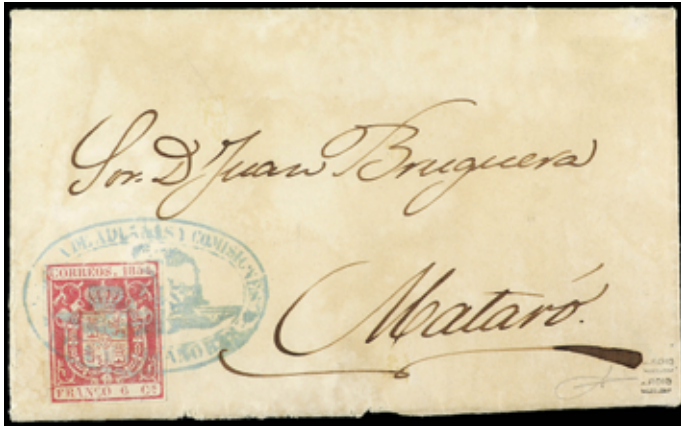 Sor. D Juan Bruguera
Mataró.
DE ADUANAS Y COMISIONES
CORREOS. 1854
FRANCO 6 Cs